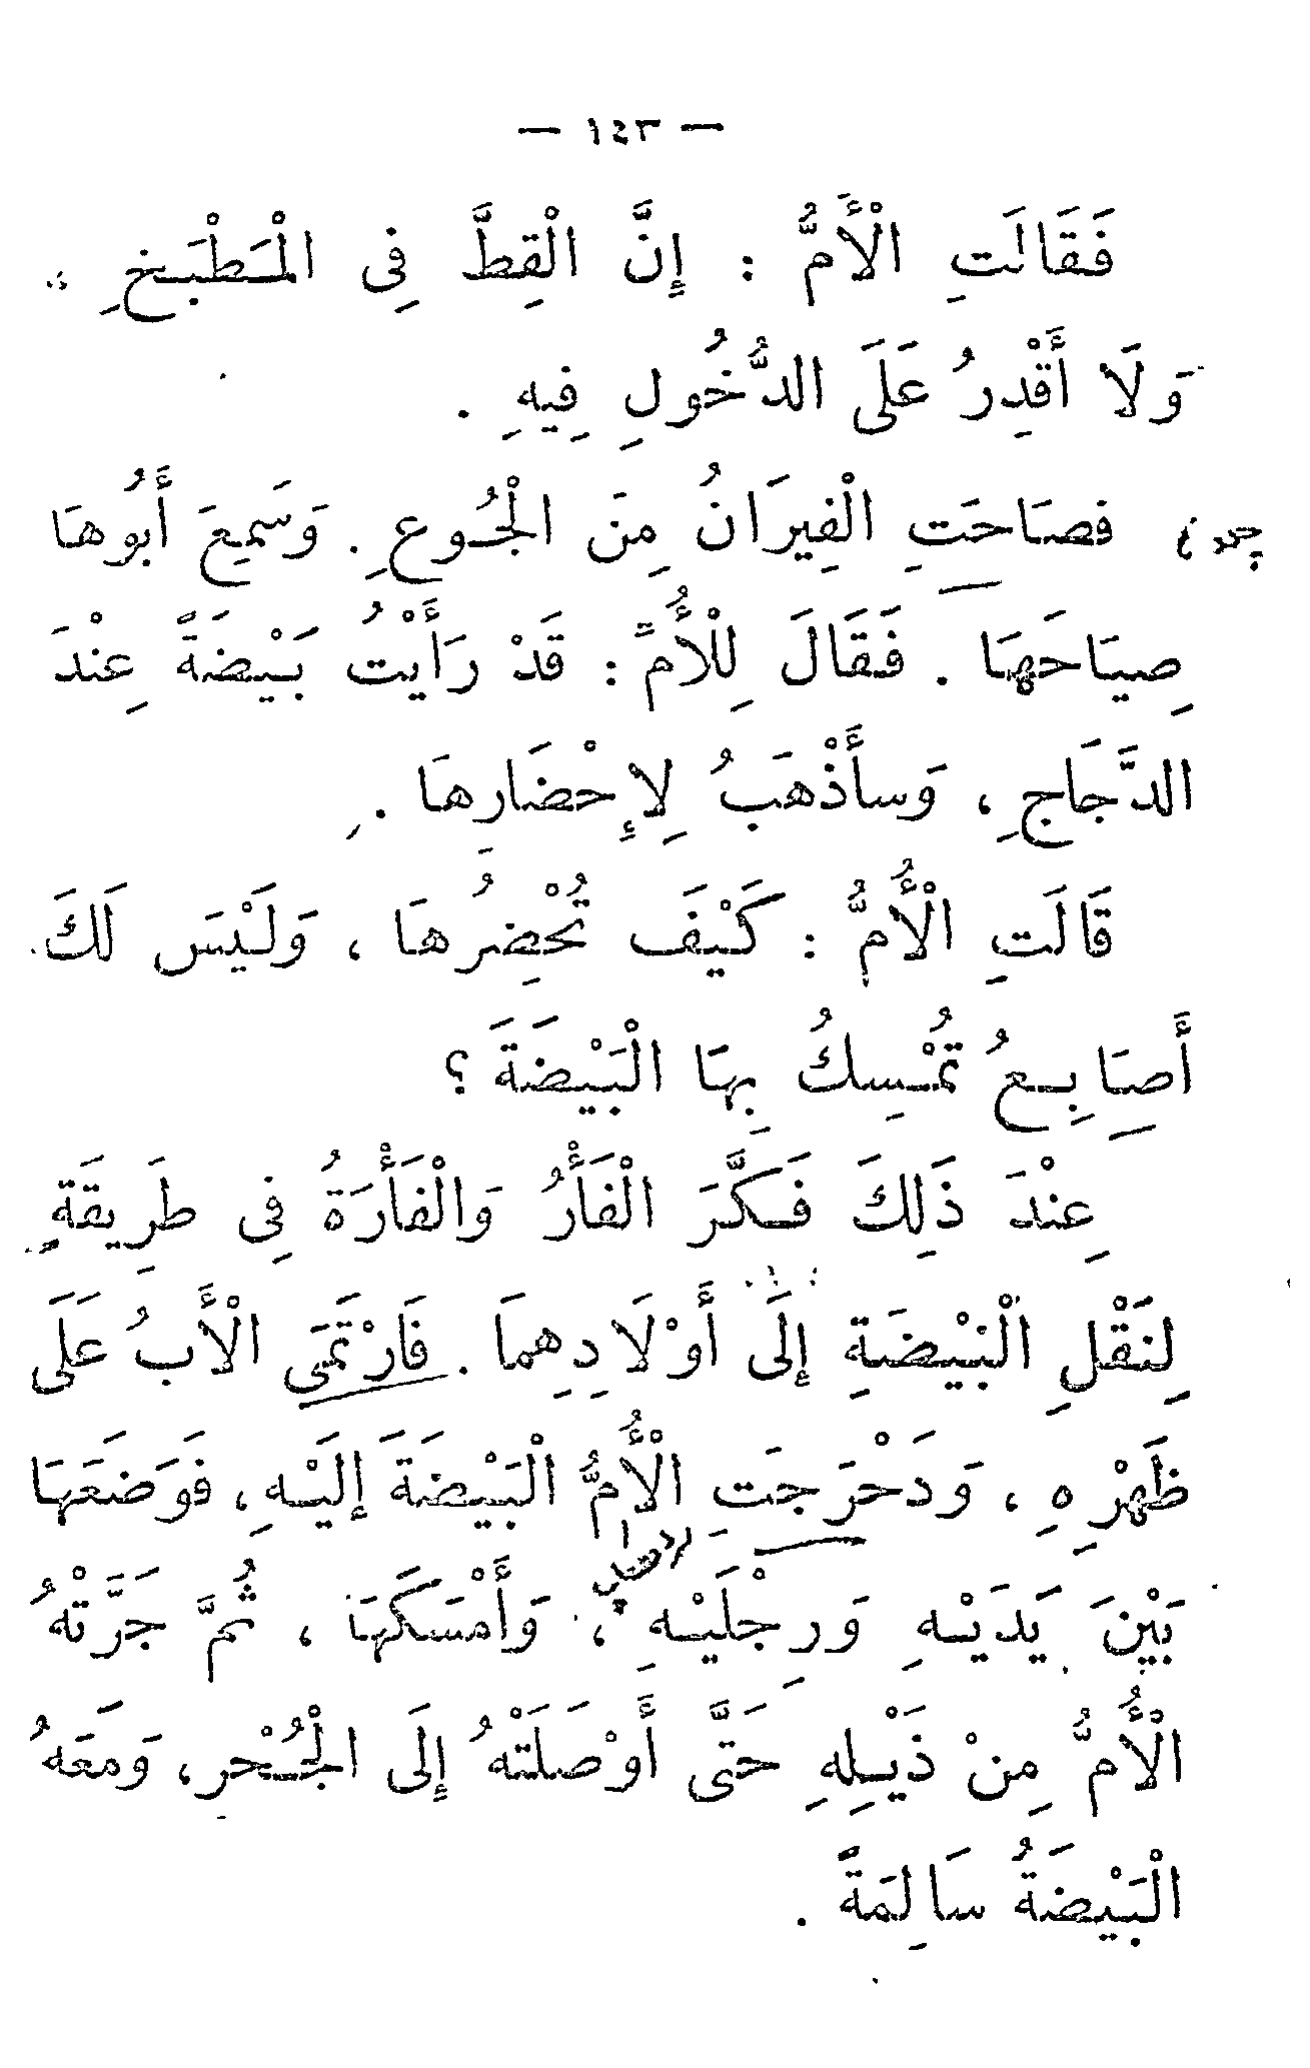 — ١٤٣ —
فَقَالَتِ الْأُمُّ : إِنَّ الْقِطَّ فِى الْمَطْبَخِ ،
وَلَا أَقْدِرُ عَلَى الدُّخُولِ فِيهِ .
فصَاحَتِ الْفِيرَانُ مِنَ الْجُوعِ . وَسَمِعَ أَبُوهَا
صِيَاحَهَا . فَقَالَ لِلْأُمِّ : قَدْ رَأَيْتُ بَيْضَةً عِنْدَ
الدَّجَاجِ ، وَسأَذْهَبُ لِإِحْضَارِهَا .
قَالَتِ الْأُمُّ : كَيْفَ تُحْضِرُهَا ، وَلَيْسَ لَكَ
أَصَابِعُ تُمْسِكُ بِهَا الْبَيْضَةَ ؟
عِنْدَ ذَلِكَ فَكَّرَ الْفَأْرُ وَالْفَأْرَةُ فِى طَرِيقَةٍ
لِنَقْلِ الْبَيْضَةِ إِلَى أَوْلَادِهِمَا . فَارْتَمَى الْأَبُ عَلَى
ظَهْرِهِ ، وَدَحْرَجَتِ الْأُمُّ الْبَيْضَةَ إِلَيْهِ ، فَوَضَعَهَا
بَيْنَ يَدَيْهِ وَرِجْلَيْهِ ، وَأَمْسَكَهَا ، ثُمَّ جَرَّتْهُ
الْأُمُّ مِنْ ذَيْلِهِ حَتَّى أَوْصَلَتْهُ إِلَى الْجُحْرِ ، وَمَعَهُ
الْبَيْضَةُ سَالِمَةً .